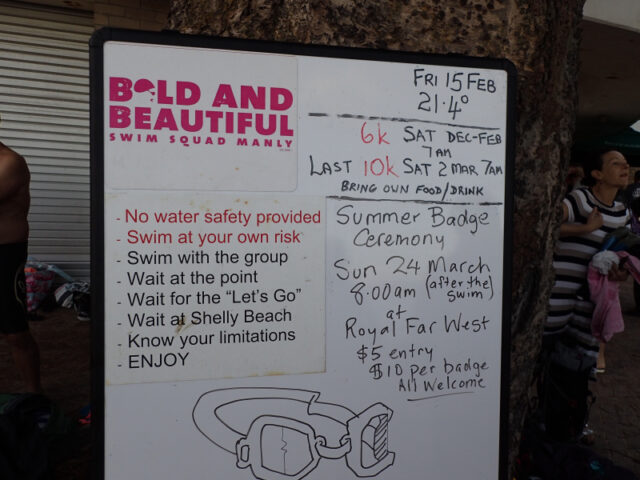 BOLD AND
BEAUTIFUL
SWIM SQUAD MANLY
- No water safety provided
- Swim at your own risk
- Swim with the group
- Wait at the point
- Wait for the "Let's Go"
- Wait at Shelly Beach
- Know your limitations
- ENJOY
FRI 15 FEB
21.4°
6k SAT DEC-FEB
7AM
LAST 10k SAT 2 MAR 7AM
BRING OWN FOOD/DRINK
Summer Badge
Ceremony
Sun 24 March
8.00am (after the swim)
at
Royal Far West
$5 entry
$10 per badge
All Welcome